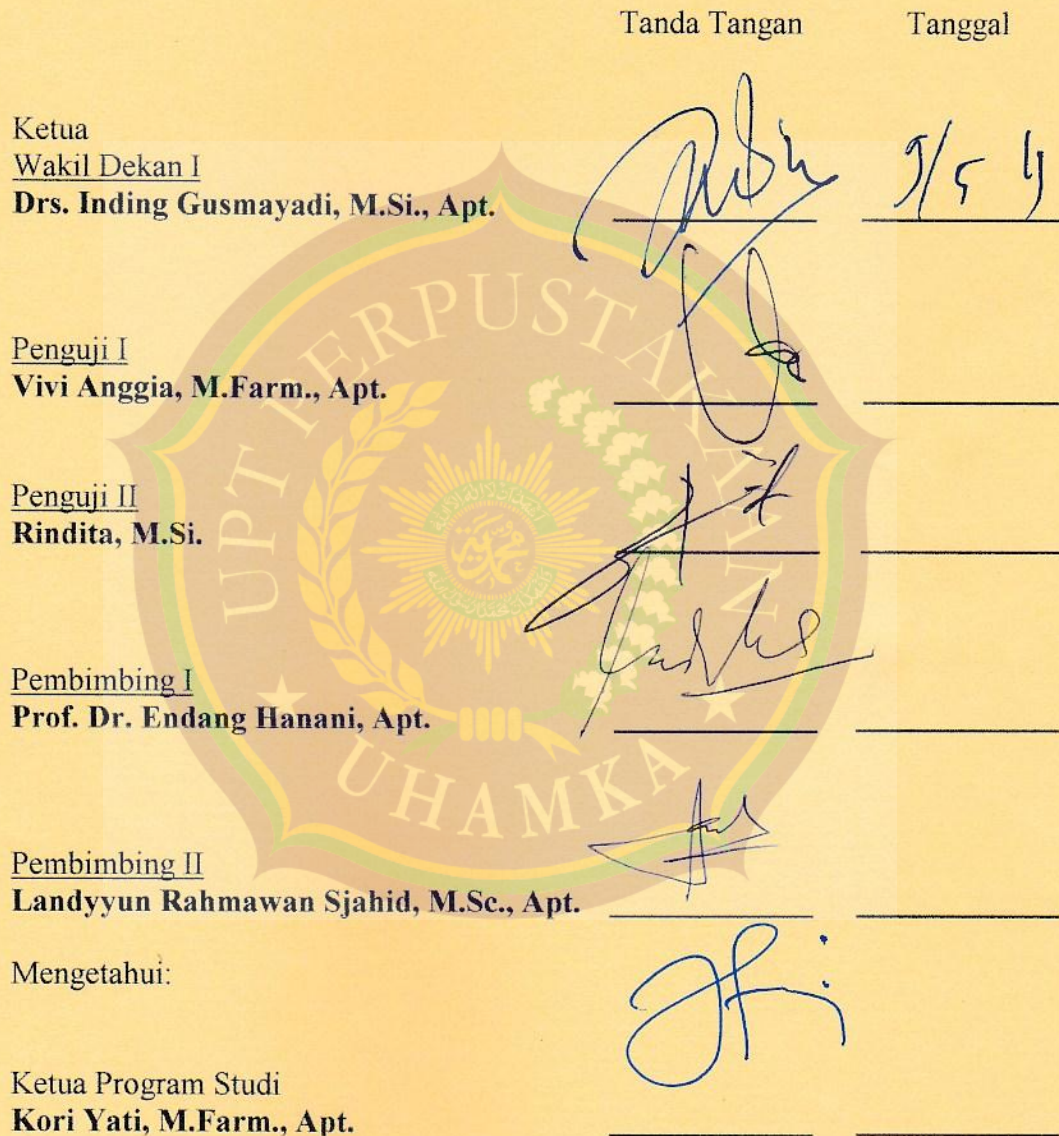 Tanda Tangan Tanggal
Ketua
Wakil Dekan I
Drs. Inding Gusmayadi, M.Si., Apt.
Penguji I
Vivi Anggia, M.Farm., Apt.
Penguji II
Rindita, M.Si.
Pembimbing I
Prof. Dr. Endang Hanani, Apt.
Pembimbing II
Landyyun Rahmawan Sjahid, M.Sc., Apt.
Mengetahui:
Ketua Program Studi
Kori Yati, M.Farm., Apt.
UPT PERPUSTAKAAN
UHAMKA